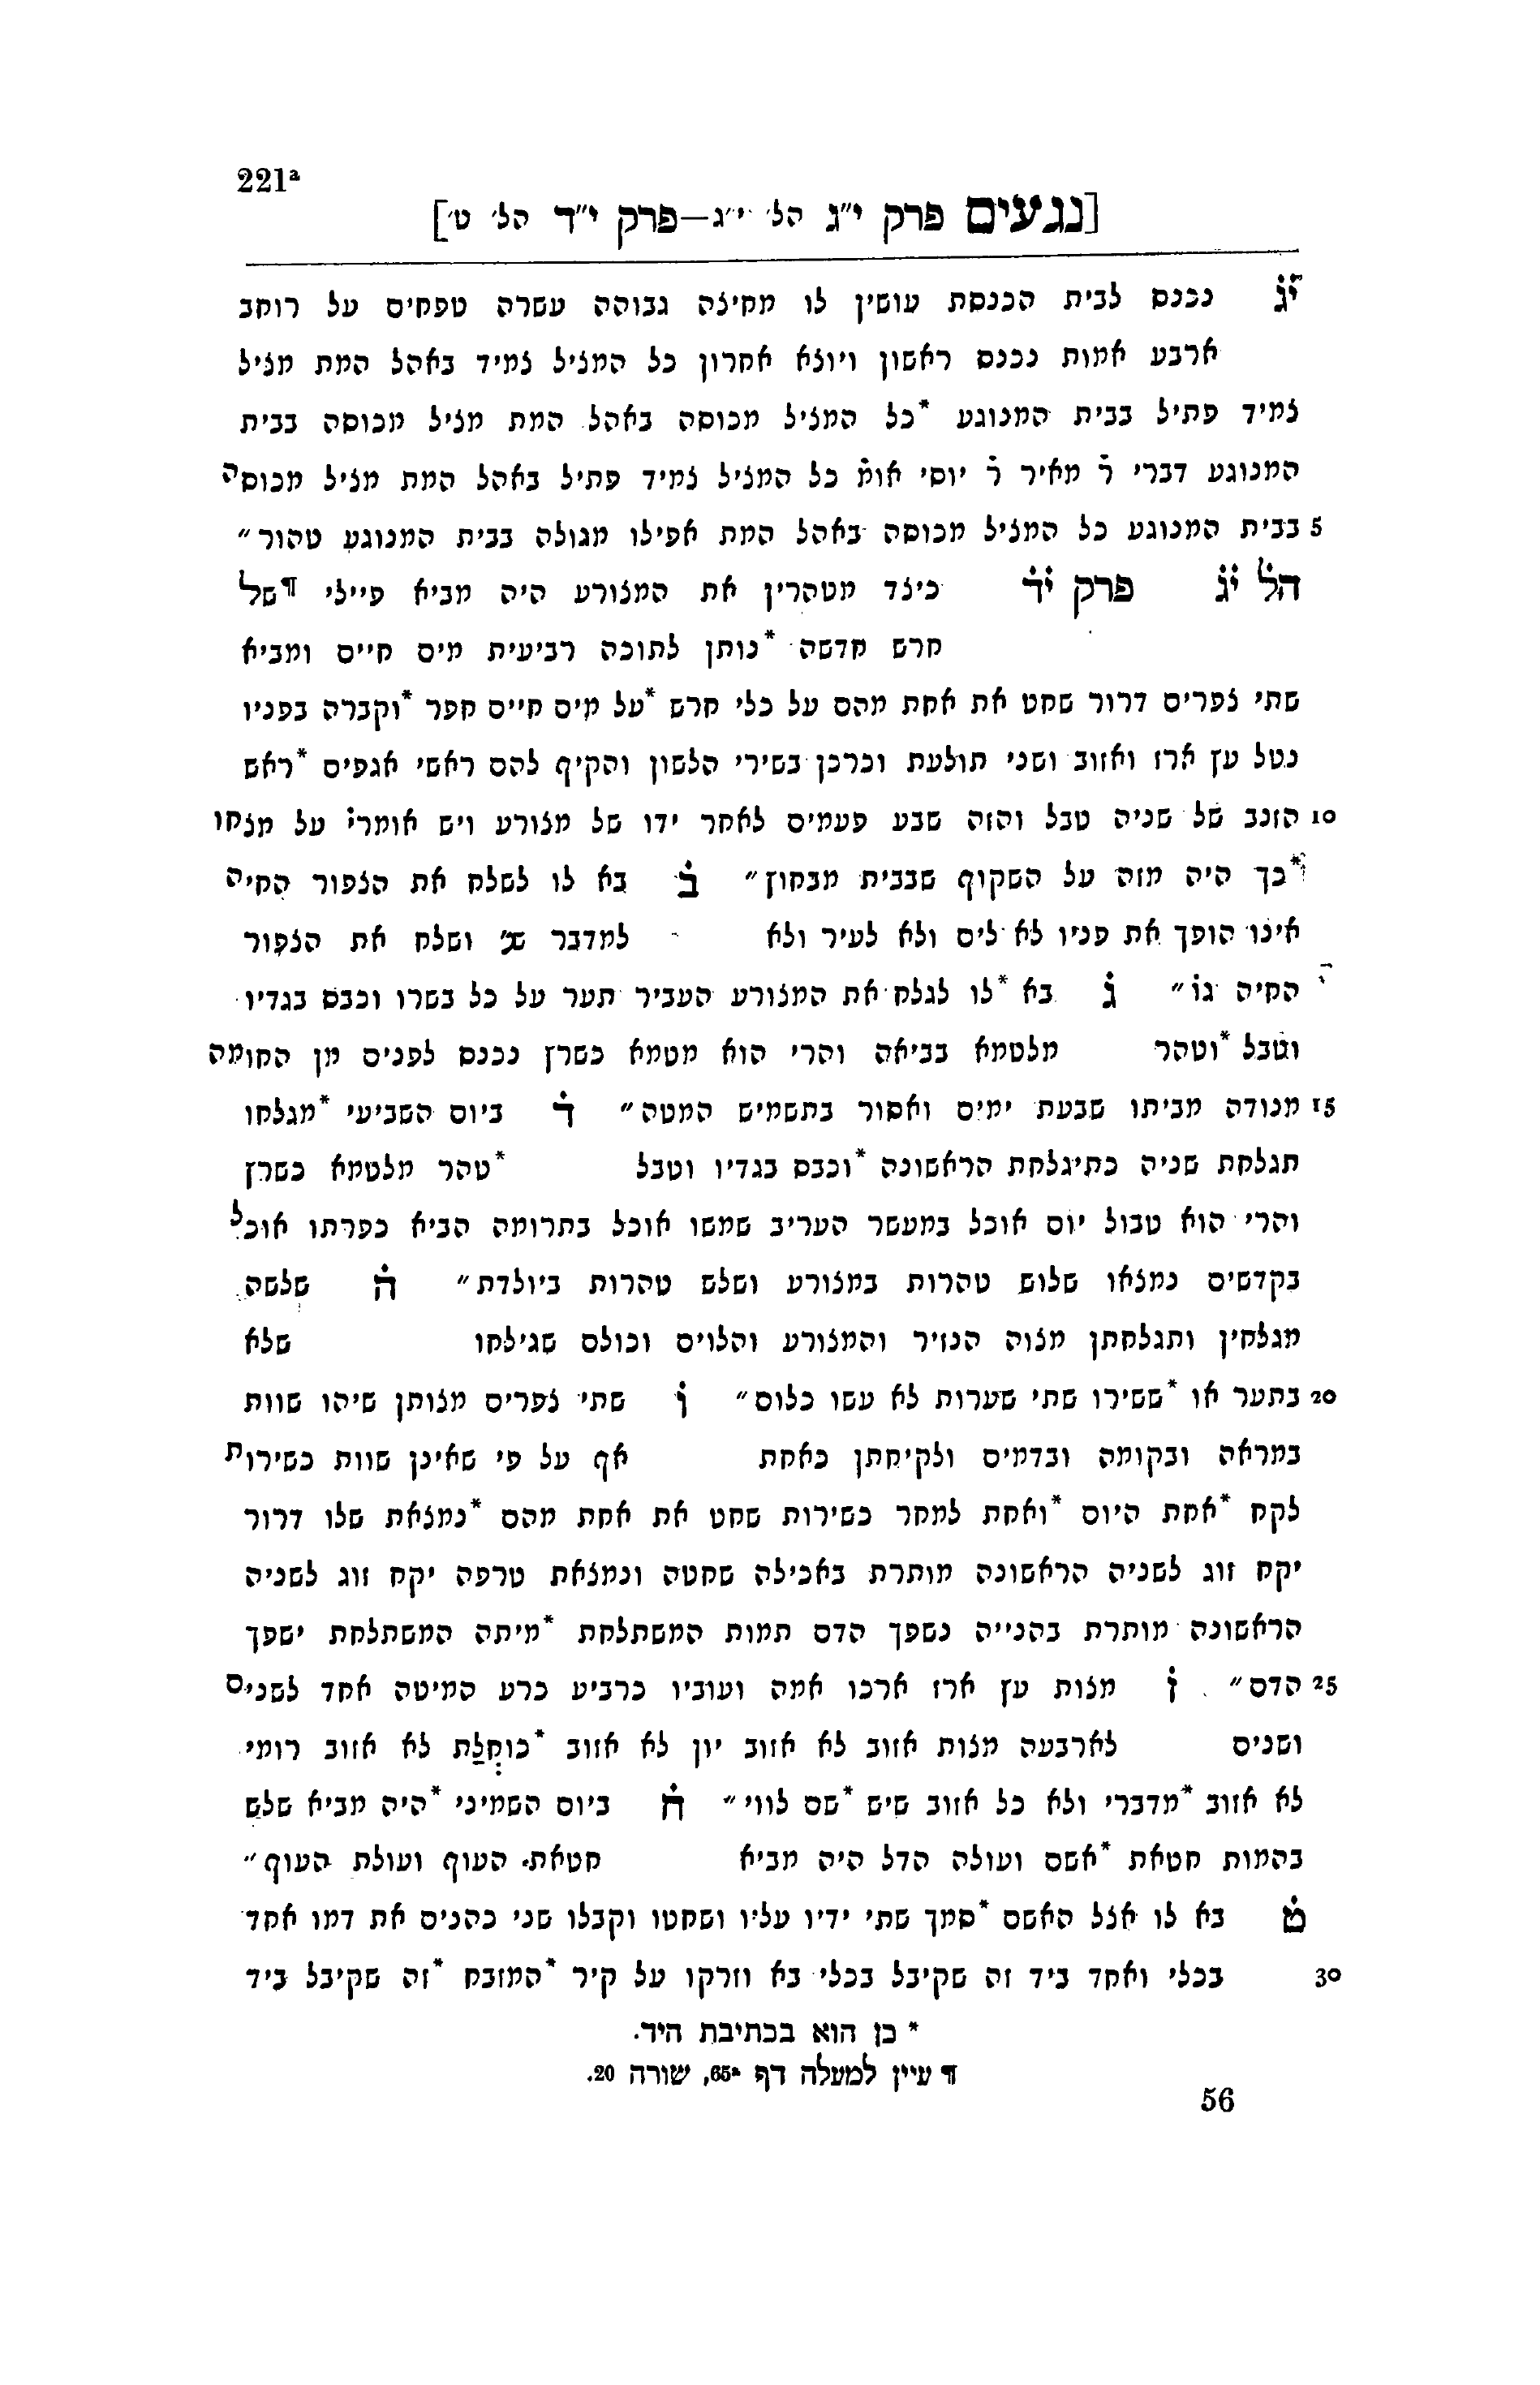 221ª
[נגעים פרק י״ג הל׳ י״ג—פרק י״ד הל׳ ט׳]
יג נכנס לבית הכנסת עושין לו מחיצה גבוהה עשרה טפחים על רוחב
ארבע אמות נכנס ראשון ויוצא אחרון כל המציל צמיד באהל המת מציל
צמיד פתיל בבית המנוגע *כל המציל מכוסה באהל המת מציל מכוסה בבית
המנוגע דברי ר׳ מאיר ר׳ יוסי אומ׳ כל המציל צמיד פתיל באהל המת מציל מכוסה
5 בבית המנוגע כל המציל מכוסה באהל המת אפילו מגולה בבית המנוגע טהור״
הל יג פרק יד כיצד מטהרין את המצורע היה מביא פיילי ¶של
חרש חדשה *נותן לתוכה רביעית מים חיים ומביא
שתי צפרים דרור שחט את אחת מהם על כלי חרש *על מים חיים חפר *וקברה בפניו
נטל עץ ארז ואזוב ושני תולעת וכרכן בשירי הלשון והקיף להם ראשי אגפים *ראש
10 הזנב של שניה טבל והזה שבע פעמים לאחר ידו של מצורע ויש אומרי׳ על מצחו
*כך היה מזה על השקוף שבבית מבחוץ״ ב בא לו לשלח את הצפור החיה
אינו הופך את פניו לא לים ולא לעיר ולא למדבר שנ׳ ושלח את הצפור
החיה גו׳״ ג בא *לו לגלח את המצורע העביר תער על כל בשרו וכבס בגדיו
וטבל *וטהר מלטמא בביאה והרי הוא מטמא כשרץ נכנס לפנים מן החומה
15 מנודה מביתו שבעת ימים ואסור בתשמיש המטה״ ד ביום השביעי *מגלחו
תגלחת שניה כתיגלחת הראשונה *וכבס בגדיו וטבל *טהר מלטמא כשרץ
והרי הוא טבול יום אוכל במעשר העריב שמשו אוכל בתרומה הביא כפרתו אוכל
בקדשים נמצאו שלוש טהרות במצורע ושלש טהרות ביולדת״ ה שלשה
מגלחין ותגלחתן מצוה הנזיר והמצורע והלוים וכולם שגילחו שלא
20 בתער או *ששירו שתי שערות לא עשו כלום״ ו שתי צפרים מצותן שיהו שוות
במראה ובקומה ובדמים ולקיחתן כאחת אף על פי שאינן שוות כשירות
לקח *אחת היום *ואחת למחר כשירות שחט את אחת מהם *נמצאת שלו דרור
יקח זוג לשניה הראשונה מותרת באכילה שחטה ונמצאת טרפה יקח זוג לשניה
הראשונה מותרת בהנייה נשפך הדם תמות המשתלחת *מיתה המשתלחת ישפך
25 הדם״ ז מצות עץ ארז ארכו אמה ועוביו כרביע כרע המיטה אחד לשנים
ושנים לארבעה מצות אזוב לא אזוב יון לא אזוב *כוחלת לא אזוב רומי
לא אזוב *מדברי ולא כל אזוב שיש *שם לווי״ ח ביום השמיני *היה מביא שלש
בהמות חטאת *אשם ועולה הדל היה מביא חטאת העוף ועולת העוף״
ט בא לו אצל האשם *סמך שתי ידיו עליו ושחטו וקבלו שני כהנים את דמו אחד
30 בכלי ואחד ביד זה שקיבל בכלי בא וזרקו על קיר *המזבח *זה שקיבל ביד
* כן הוא בכתיבת היד.
¶ עיין למעלה דף 65ª, שורה 20.
56